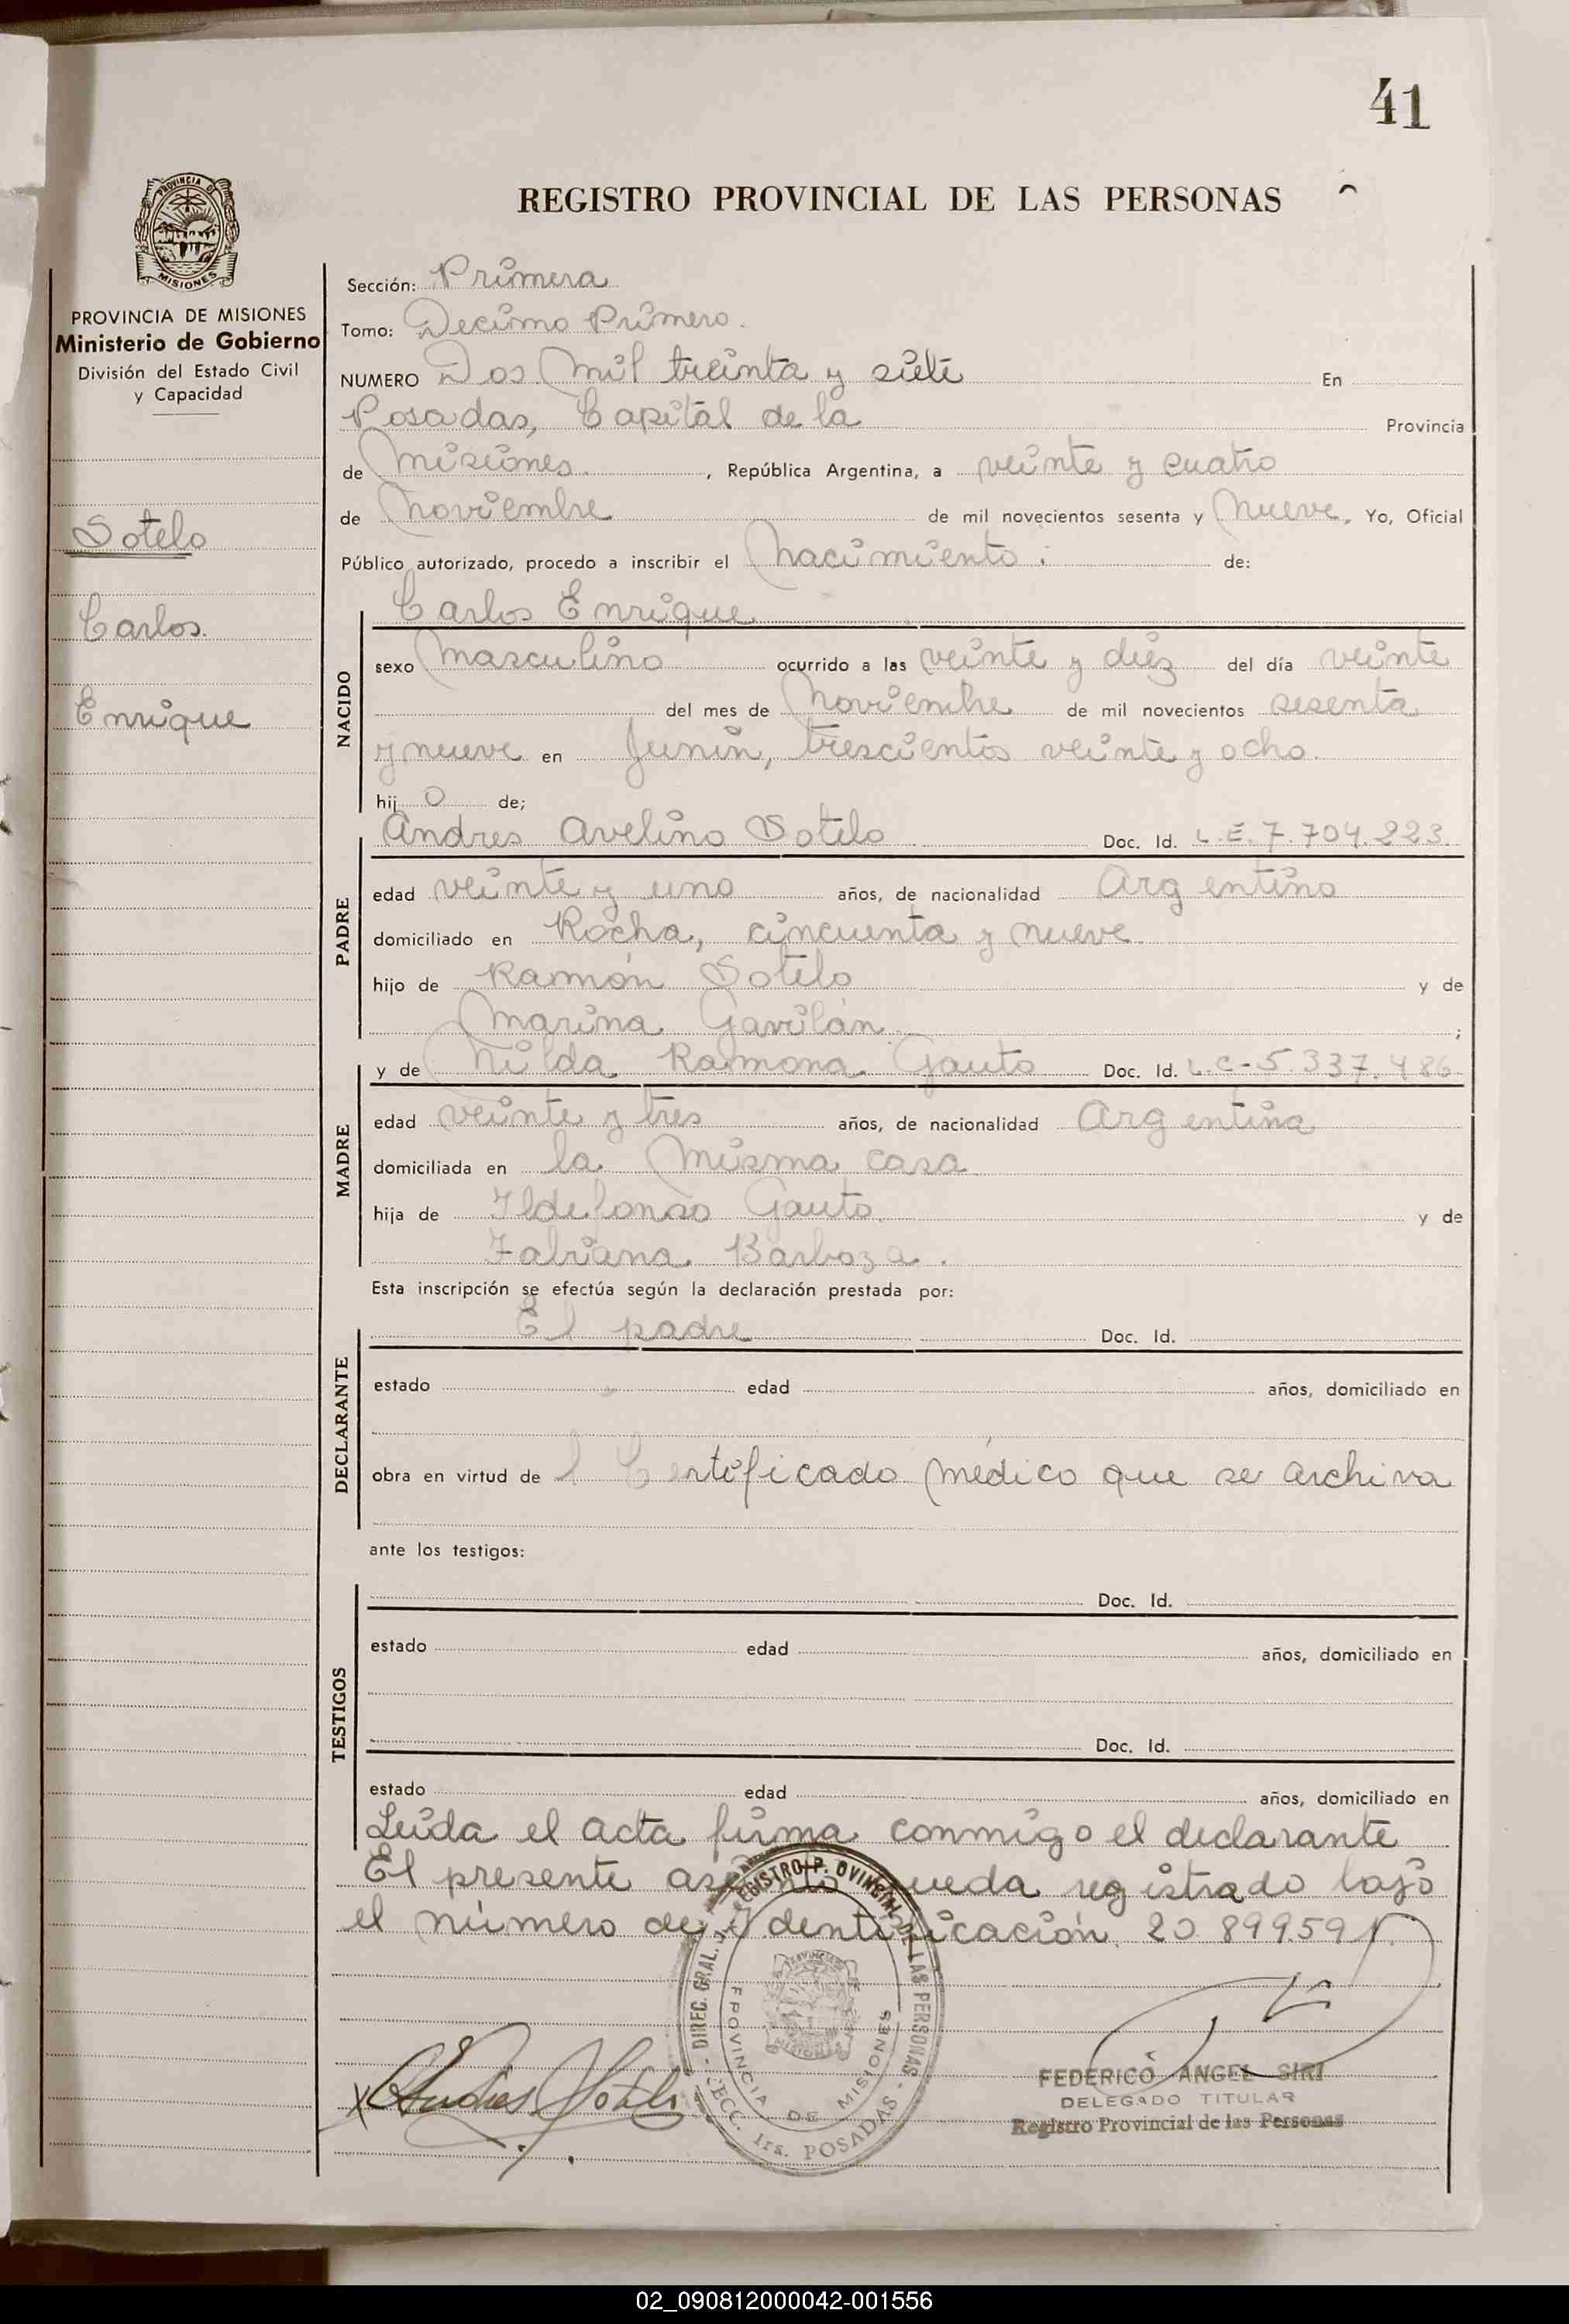 41
REGISTRO PROVINCIAL DE LAS PERSONAS
PROVINCIA DE MISIONES
PROVINCIA DE MISIONES
Ministerio de Gobierno
División del Estado Civil
y Capacidad
Sotelo
Carlos
Enrique
Sección: Primera
Tomo: Decimo Primero.
NUMERO Dos Mil treinta y siete En
Posadas, Capital de la Provincia
de Misiones. , República Argentina, a veinte y cuatro
de Noviembre de mil novecientos sesenta y Nueve, Yo, Oficial
Público autorizado, procedo a inscribir el Nacimiento: de:
Carlos Enrique
NACIDO
sexo Masculino ocurrido a las veinte y diez del día veinte
del mes de Noviembre de mil novecientos sesenta
y nueve en Junín, trescientos veinte y ocho.
hij o de;
Andres Avelino Sotelo Doc. Id. L.E. 7.704.223.
PADRE
edad veinte y uno años, de nacionalidad Argentino
domiciliado en Rocha, cincuenta y nueve.
hijo de Ramón Sotelo y de
Marina Gavilán ;
y de Nilda Ramona Gauto Doc. Id. L.C-5.337.486
MADRE
edad veinte y tres años, de nacionalidad Argentina
domiciliada en la Misma casa
hija de Ildefonso Gauto y de
Fabiana Barboza.
Esta inscripción se efectúa según la declaración prestada por:
El padre Doc. Id.
DECLARANTE
estado edad años, domiciliado en
obra en virtud de l Certificado Médico que se archiva
ante los testigos:
Doc. Id.
TESTIGOS
estado edad años, domiciliado en
Doc. Id.
estado edad años, domiciliado en
Leida el acta firma conmigo el declarante
El presente asiento queda registrado bajo
el número de Identificación 20.899.591.
DIREC. GRAL. REGISTRO PROVINCIAL DE LAS PERSONAS
PROVINCIA DE MISIONES
SECC. 1ra. POSADAS
MISIONES
Andres Sotelo
FEDERICO ANGEL SIRI
DELEGADO TITULAR
Registro Provincial de las Personas
02_090812000042-001556